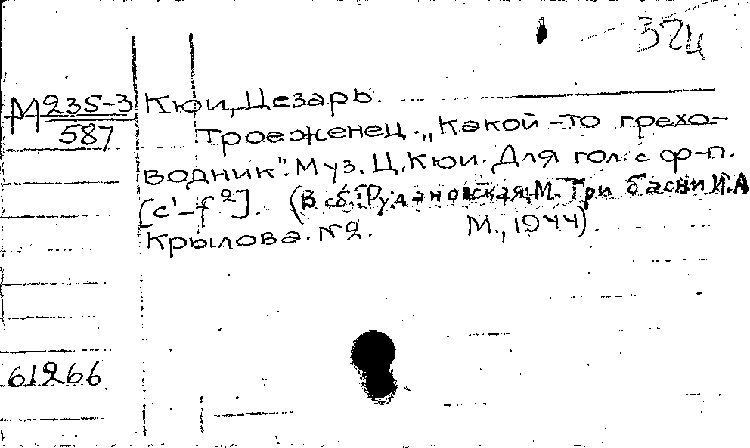 324
М 235-3 Кюи, Цезарь.
587 Троеженец. „Какой-то грехо-
водник". Муз. Ц. Кюи. Для гол. с ф-п.
[c¹-f²]. (В сб.: Рудановская, М. Три басни И.А
Крылова. №2. М., 1944).
61266